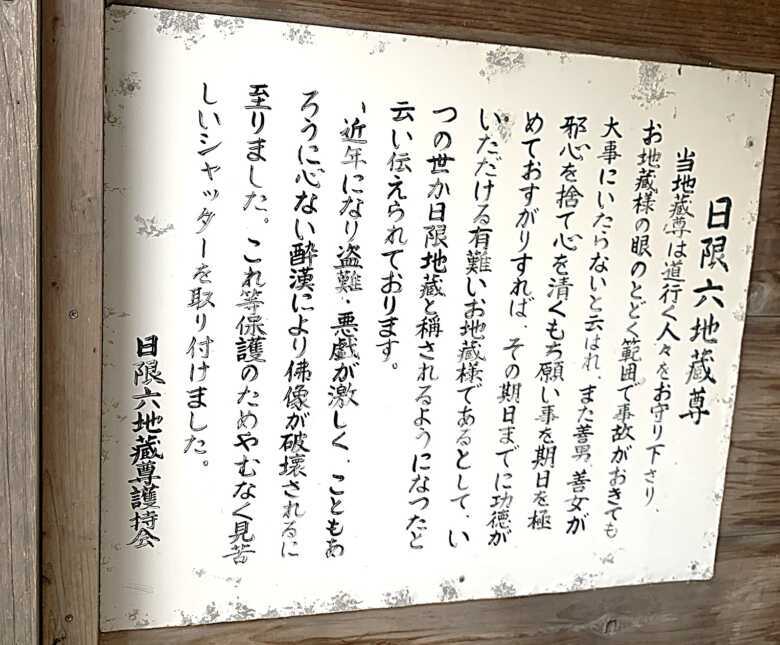 日限六地蔵尊
当地蔵尊は道行く人々をお守り下さり、
お地蔵様の眼のとどく範囲で事故がおきても
大事にいたらないと云はれ、また善男、善女が
邪心を捨て心を清くもち願い事を期日を極
めておすがりすれば、その期日までに功徳が
いただける有難いお地蔵様であるとして、い
つの世か日限地蔵と稱されるようになつたと
云い伝えられております。
、近年になり盗難・悪戯が激しく、こともあ
ろうに心ない酔漢により佛像が破壊されるに
至りました。これ等保護のためやむなく見苦
しいシャッターを取り付けました。
日限六地蔵尊護持会